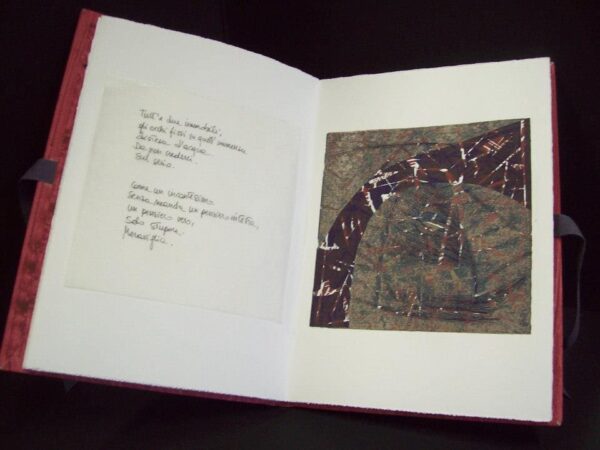 Tutt'e due
gli occhi fissi su quell'immensa
distesa d'acqua
Da non crederci.
Sul serio.
Come un incantesimo.
Senza neanche un pensiero in testa,
un pensiero vero,
Solo stupore.
Meraviglia.